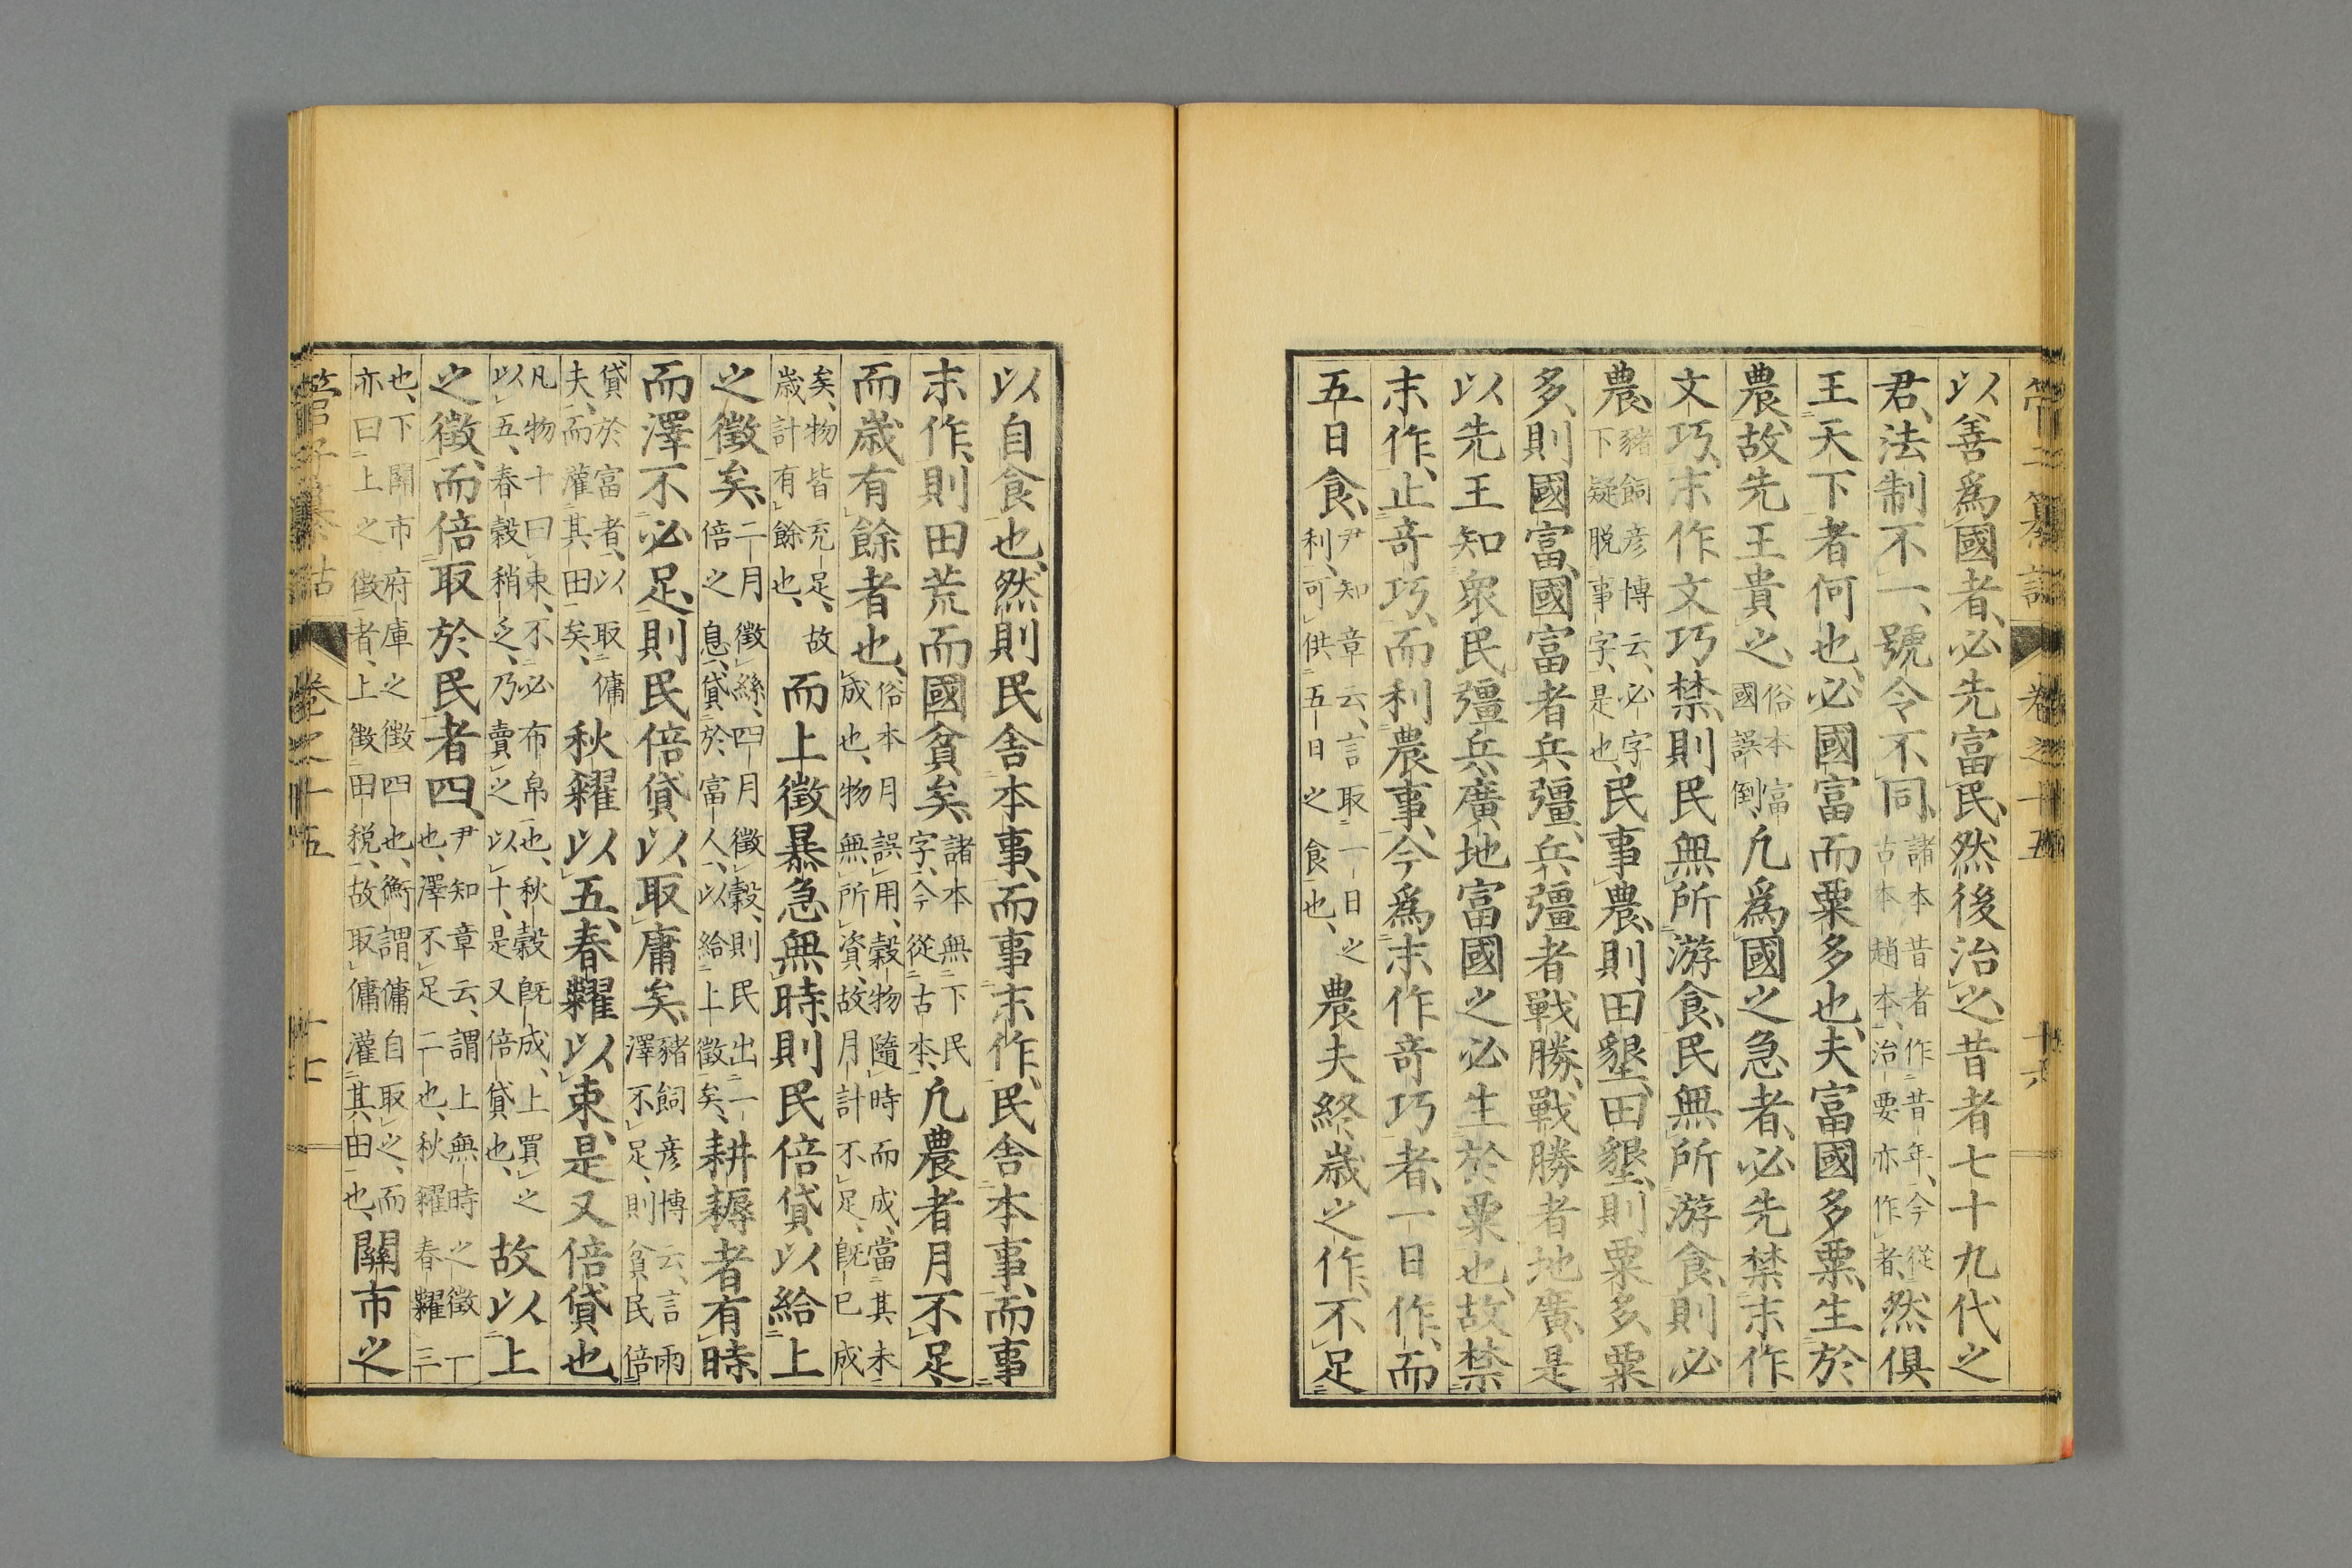 管子纂詁 卷之十五 十六
以善爲國者、必先富民、然後治之、昔者七十九代之
君、法制不一、號令不同、諸本昔者作昔年、今從古本趙本、治要亦作者、然俱
王天下者何也、必國富而粟多也、夫富國多粟、生於
農、故先王貴之、俗本富國誤倒、凢爲國之急者、必先禁末作
文巧、末作文巧禁、則民無所游食、民無所游食、則必
農、豬飼彦博云、必字下疑脱事字、是也、民事農、則田墾、田墾、則粟多、粟
多、則國富、國富者兵彊、兵彊者戰勝、戰勝者地廣、是
以先王知衆民彊兵、廣地富國之必生於粟也、故禁
末作、止奇巧、而利農事、今爲末作奇巧者、一日作、而
五日食、尹知章云、言取一日之利、可供五日之食也、農夫終歳之作、不足
以自食也、然則民舍本事、而事末作、民舍本事、而事
末作、則田荒而國貧矣、諸本無下民字、今從古本、凢農者月不足、
而歳有餘者也、俗本月誤用、穀物隨時而成、當其未成也、物無所資、故月計不足、既已成
矣、物皆充足、故歳計有餘也、而上徵暴急無時、則民倍貸以給上
之徵矣、二月徵絲、四月徵穀、則民出二倍之息、貸於富人、以給上徵矣、耕耨者有時
而澤不必足、則民倍貸以取庸矣、豬飼彦博云、言雨澤不足、則貧民倍
貸於富者、以取傭夫、而灌其田矣、秋糴以五、春糶以束、是又倍貸也、
凡物十曰束、不必布帛也、秋穀既成、上買之以五、春穀稍乏、乃賣之以十、是又倍貸也、故以上
之徵、而倍取於民者四、尹知章云、謂上無時之徵一也、澤不足二也、秋糴春糶三
也、下關市府庫之徵四也、衡謂傭自取之、而亦曰上之徵者、上徵田税、故取傭灌其田也、關市之
管子纂詁 卷之十五 十七